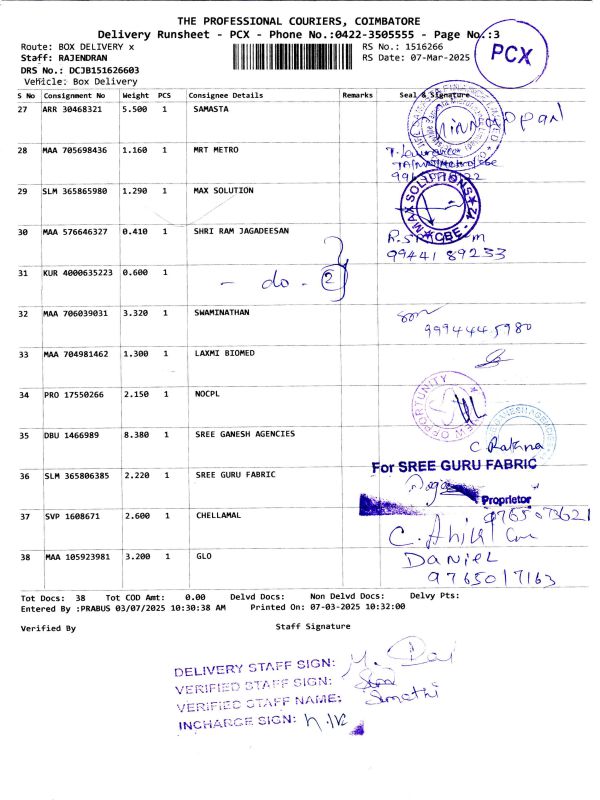 THE PROFESSIONAL COURIERS, COIMBATORE
Delivery Runsheet - PCX - Phone No.:0422-3505555 - Page No.:3
Route: BOX DELIVERY x RS No.: 1516266
Staff: RAJENDRAN RS Date: 07-Mar-2025
PCX
DRS No.: DCJB151626603
Vehicle: Box Delivery
S No Consignment No Weight PCS Consignee Details Remarks Seal & Signature
27 ARR 30468321 5.500 1 SAMASTA
28 MAA 705698436 1.160 1 MRT METRO
29 SLM 365865980 1.290 1 MAX SOLUTION
MAX SOLUTIONS CBE-12
30 MAA 576646327 0.410 1 SHRI RAM JAGADEESAN
99441 89253
31 KUR 4000635223 0.600 1 - do - 2
32 MAA 706039031 3.320 1 SWAMINATHAN
9994445980
33 MAA 704981462 1.300 1 LAXMI BIOMED
34 PRO 17550266 2.150 1 NOCPL
VIEW OF OPPORTUNITY
35 DBU 1466989 8.380 1 SREE GANESH AGENCIES
C Rathna
36 SLM 365806385 2.220 1 SREE GURU FABRIC
For SREE GURU FABRIC
Proprietor
37 SVP 1608671 2.600 1 CHELLAMAL
9765073621
38 MAA 105923981 3.200 1 GLO
DANIEL
9765017163
Tot Docs: 38 Tot COD Amt: 0.00 Delvd Docs: Non Delvd Docs: Delvy Pts:
Entered By :PRABUS 03/07/2025 10:30:38 AM Printed On: 07-03-2025 10:32:00
Verified By Staff Signature
DELIVERY STAFF SIGN:
VERIFIED STAFF SIGN:
VERIFIED STAFF NAME: Sumathi
INCHARGE SIGN: